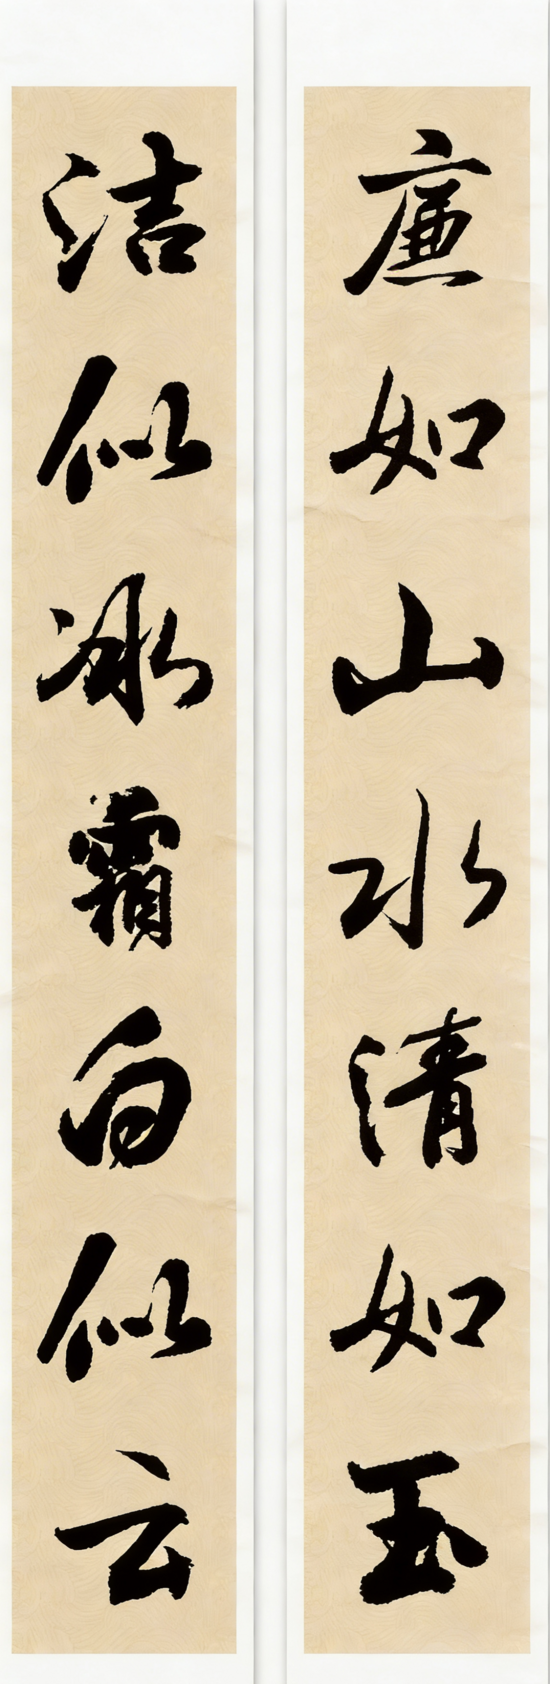 廉如山水清如玉
洁似冰霜白似云